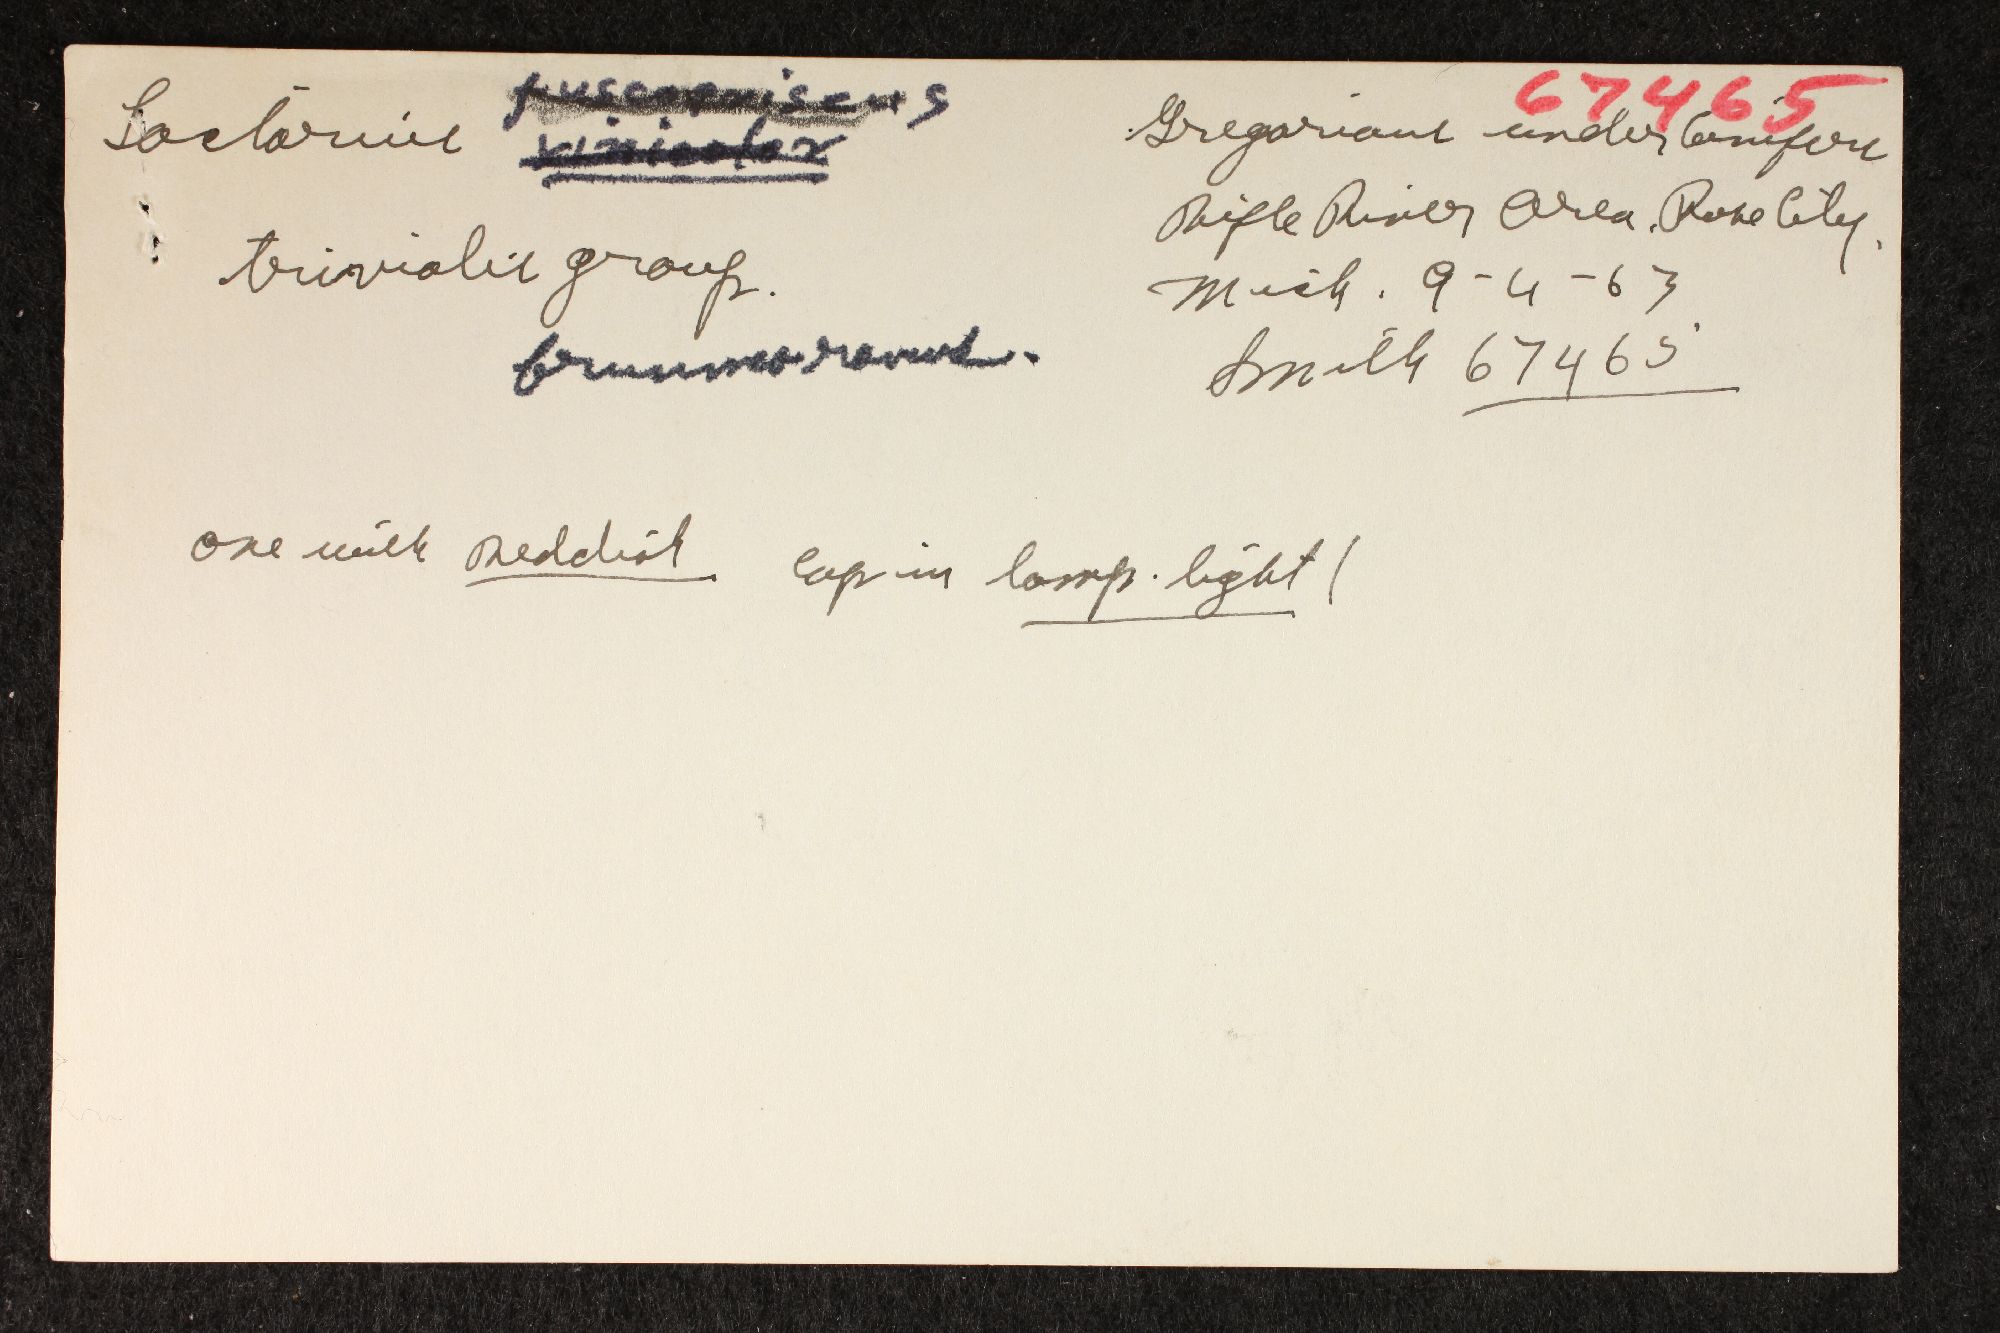 67465
Lactarius
vinicolor
trivialis group.
Gregarious under conifers
Rifle River Area. Rose City,
Mich. 9-4-63
Smith 67465
one with reddish cap in lamp-light!